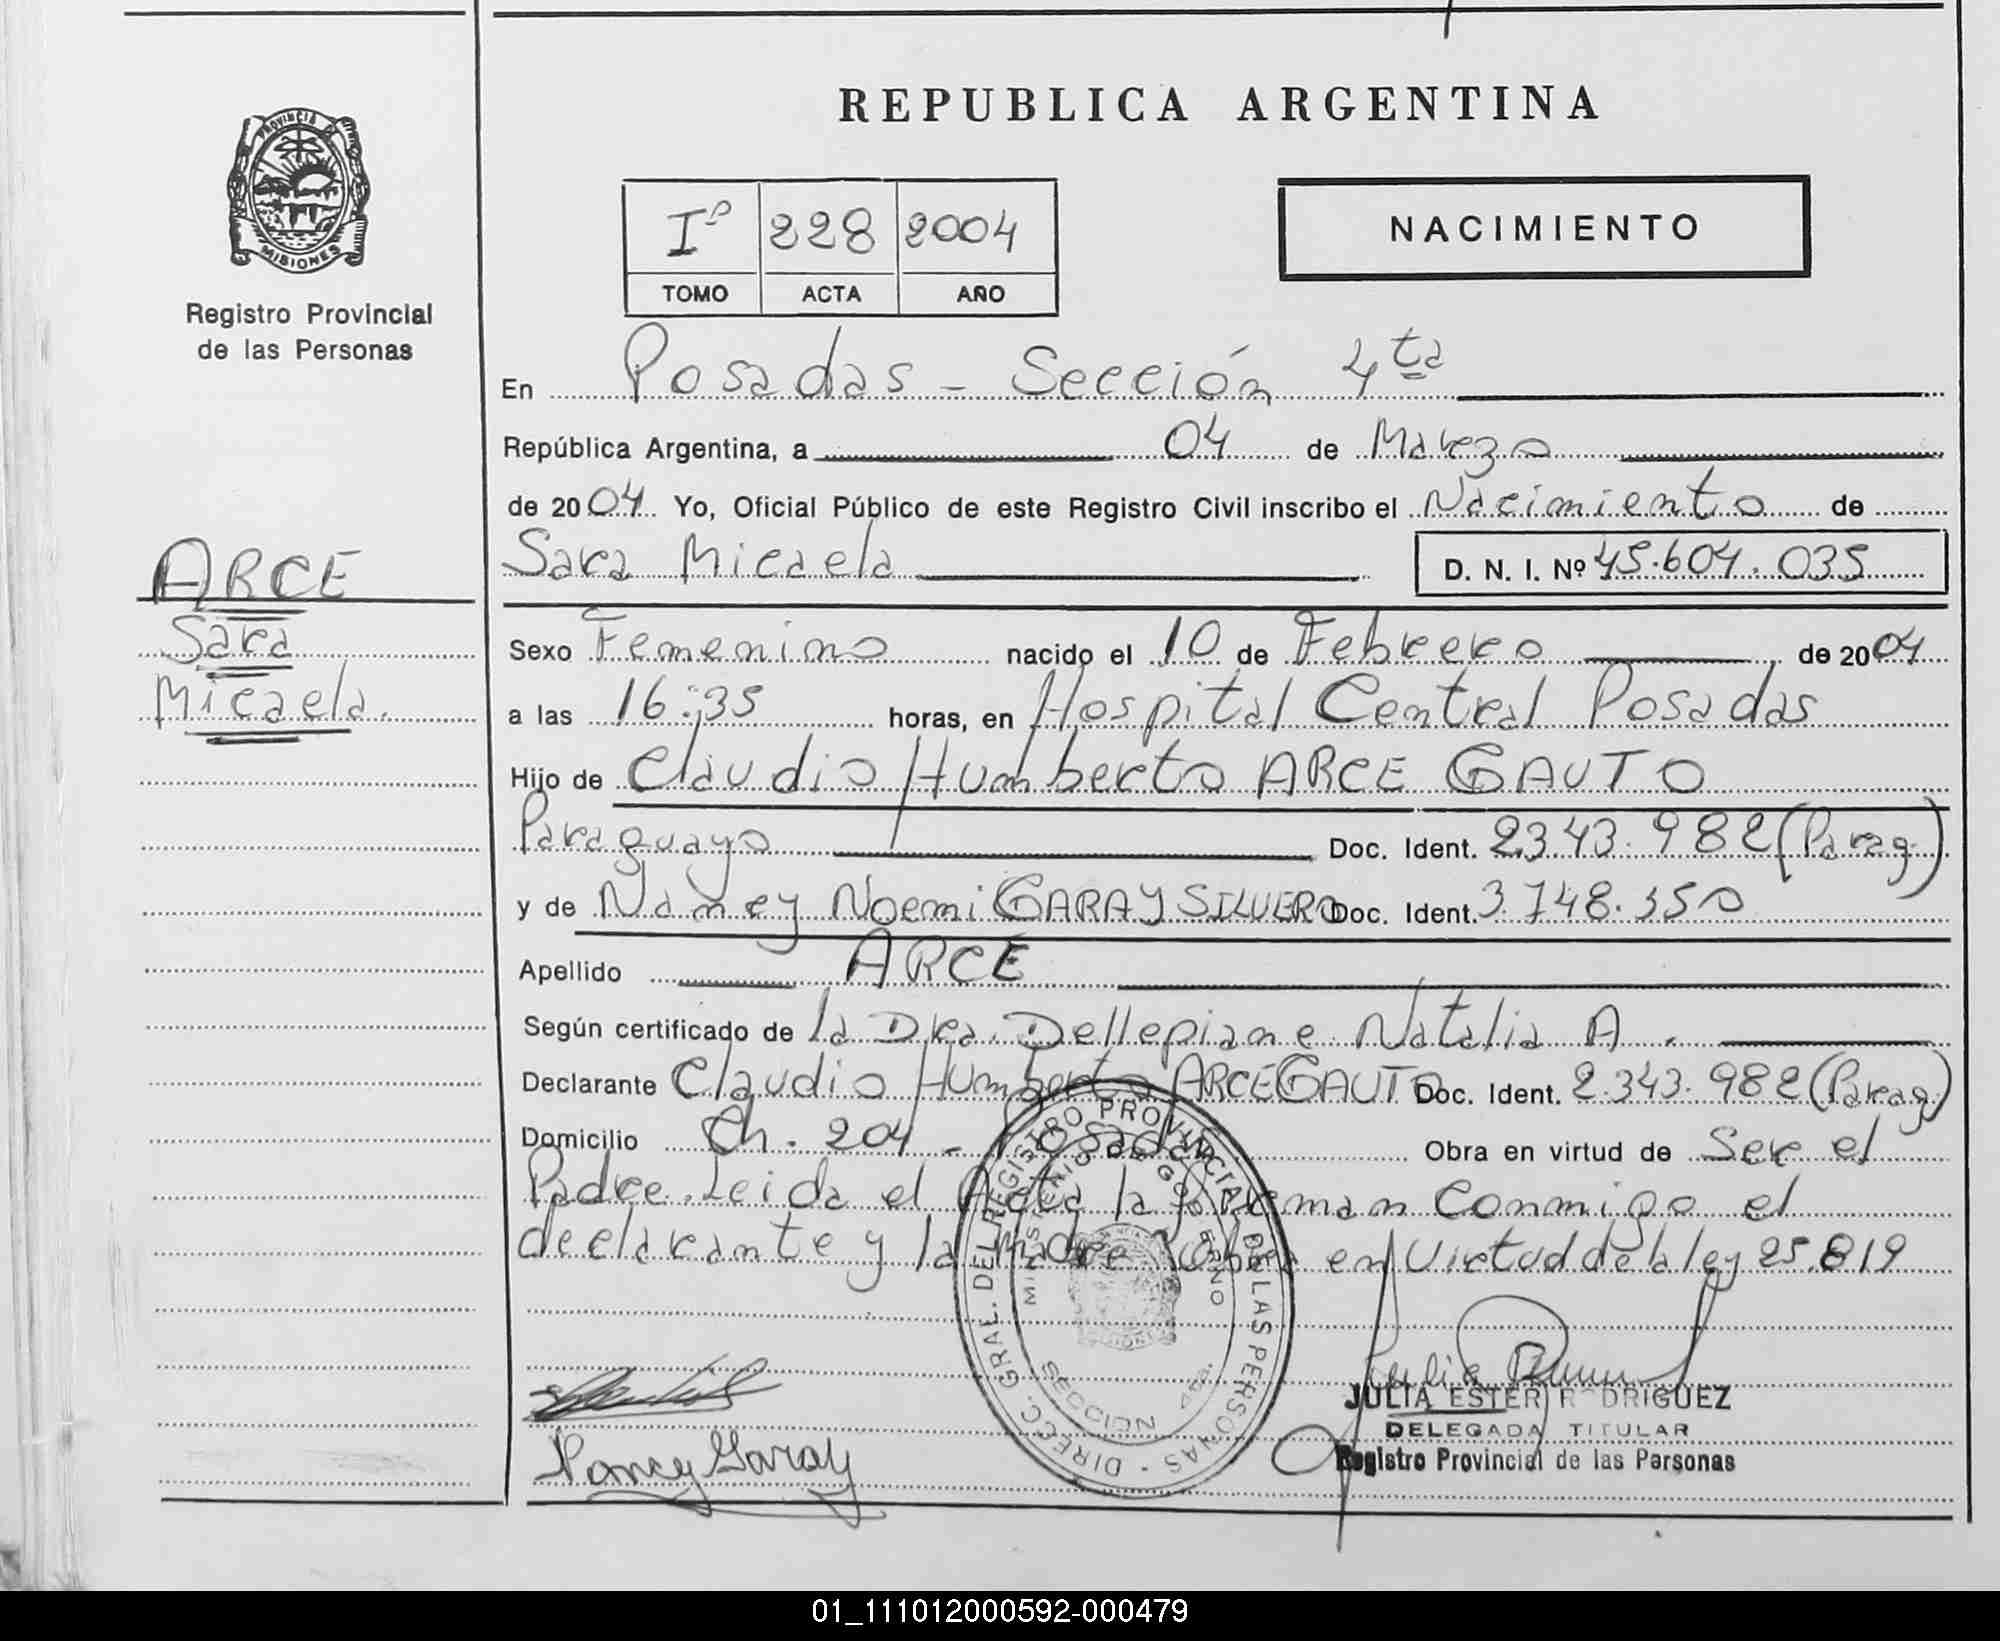 REPUBLICA ARGENTINA
PROVINCIA DE
MISIONES
Registro Provincial
de las Personas
Iº 228 2004
TOMO ACTA AÑO
NACIMIENTO
En Posadas - Sección 4ta
República Argentina, a 04 de Marzo
de 2004 Yo, Oficial Público de este Registro Civil inscribo el Nacimiento de
Sara Micaela D. N. I. Nº 45.604.035
ARCE
Sara
Micaela.
Sexo Femenino nacido el 10 de Febrero de 2004
a las 16:35 horas, en Hospital Central Posadas
Hijo de Claudio Humberto ARCE GAUTO
Paraguayo Doc. Ident. 2343.982 (Parag.)
y de Nancy Noemi GARAY SILVERO Doc. Ident. 3.748.350
Apellido ARCE
Según certificado de la Dra. Dellepiane Natalia A.
Declarante Claudio Humberto ARCE GAUTO Doc. Ident. 2.343.982 (Parag)
Domicilio Ch. 204 - Posadas Obra en virtud de Ser el
Padre. Leida el Acta la firman conmigo el
declarante y la madre en Virtud de la ley 25.819
DIREC. GRAL. DEL REGISTRO PROVINCIAL DE LAS PERSONAS
MINISTERIO DE GOBIERNO
SECCION 4ta.
Nancy Garay
JULIA ESTER RODRIGUEZ
DELEGADA TITULAR
Registro Provincial de las Personas
01_111012000592-000479